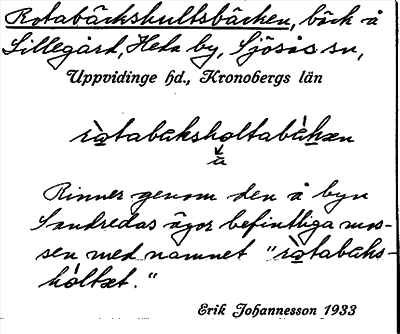 Rotabäckshultsbäcken, bäck å
Lillegård, Heda by, Sjösås sn,
Uppvidinge hd., Kronobergs län
ràtabakshọltabàkæn
u
Rinner genom den å byn
Sandredas ägor befintliga mos-
sen med namnet "ràtabaks-
hòltæt."
Erik Johannesson 1933